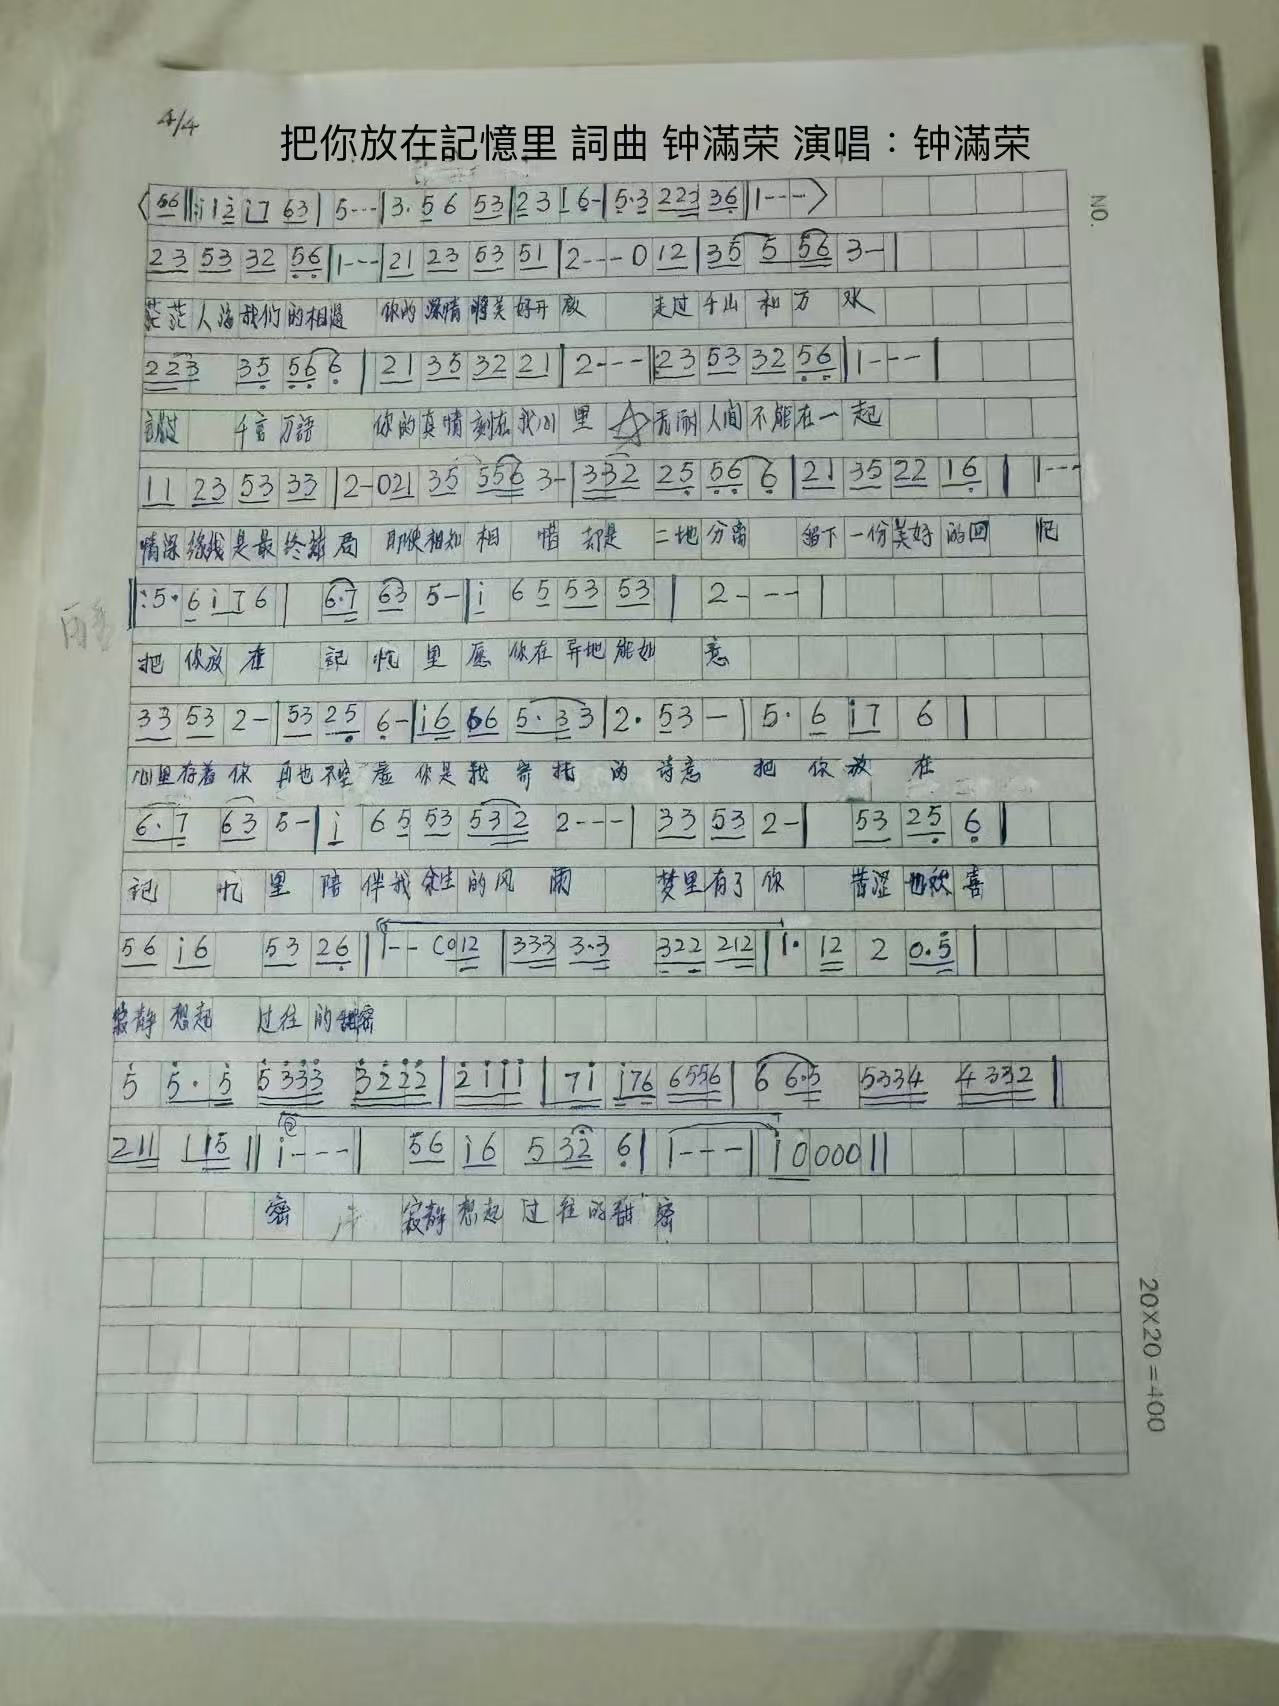 4/4
把你放在記憶里 詞曲 钟滿荣 演唱：钟滿荣
NO.
2 3 5 3 3 2 5 6 | 1 - - - | 2 1 2 3 5 3 5 1 | 2 - - - 0 1 2 | 3 5 5 5 6 3 - |
茫茫人海我们的相遇 你的深情将美好开啟 走过千山和万水
2 2 3 3 5 5 6 6 | 2 1 3 5 3 2 2 1 | 2 - - - | 2 3 5 3 3 2 5 6 | 1 - - - |
千言万語 你的真情刻在我心里 无耐人间不能在一起
1 1 2 3 5 3 3 3 | 2 - 0 2 1 3 5 5 5 6 3 - | 3 3 2 2 5 5 6 6 | 2 1 3 5 2 2 1 6 | 1 - - -
情深缘浅是最终結局 即使相知相惜却是二地分离 留下一份美好的回忆
‖: 5 · 6 i 7 6 | 6 · 7 6 3 5 - | i 6 5 5 3 5 3 | 2 - - - |
把你放在 記忆里愿你在异地能如意
3 3 5 3 2 - | 5 3 2 5 6 - | i 6 6 6 5 · 3 3 | 2 · 5 3 - | 5 · 6 i 7 6 |
心里存着你 再也不空虚 你是我寄托的诗意 把你放在
6 · 7 6 3 5 - | i 6 5 5 3 5 3 2 2 - - - | 3 3 5 3 2 - | 5 3 2 5 6 |
記忆里陪伴我余生的风雨 梦里有了你 苦涩也欢喜
5 6 i 6 5 3 2 6 | 1 - - ( 0 1 2 | 3 3 3 3 · 3 3 2 2 2 1 2 | 1 · 1 2 2 0 · 5 |
寂静想起 过往的甜密
5 5 · 5 5 3 3 3 3 2 2 2 | 2 i i i | 7 i i 7 6 6 5 5 6 | 6 6 · 5 5 3 3 4 4 3 3 2 |
2 1 1 1 1 5 ‖ i - - - | 5 6 i 6 5 3 2 6 | 1 - - - | 1 0 0 0 0 ‖
密 寂静想起过往的甜密
20×20=400